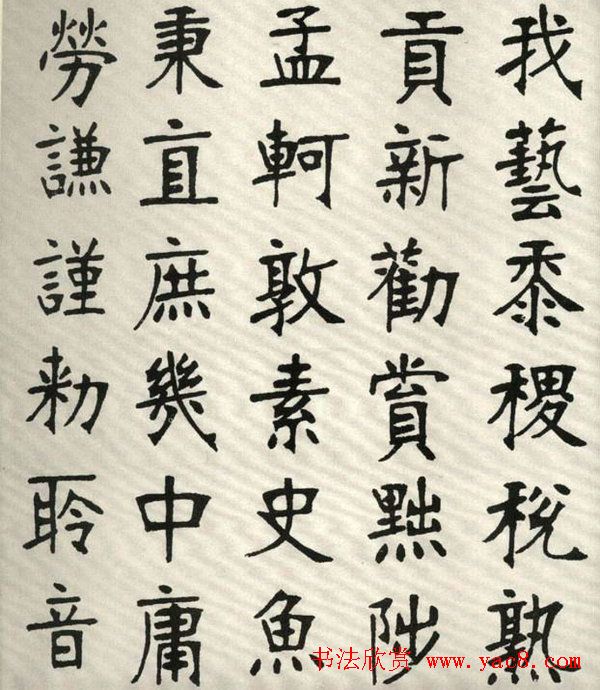 我藝黍稷稅熟
貢新勸賞黜陟
孟軻敦素史魚
秉直庶幾中庸
勞謙謹勑聆音
书法欣赏 www.yac8.com